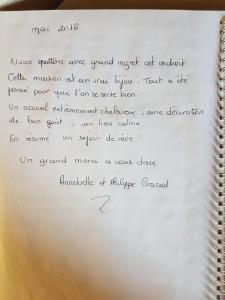 mai 2016
Nous quittons avec grand regret cet endroit
Cette maison est un vrai bijou. Tout a été
pensé pour que l'on se sente bien.
Un accueil extrèmement chaleureux, une décoration
de bon goût, un lieu calme
En résumé un sejour de rêve
Un grand merci a vous deux
Annabelle et Philippe